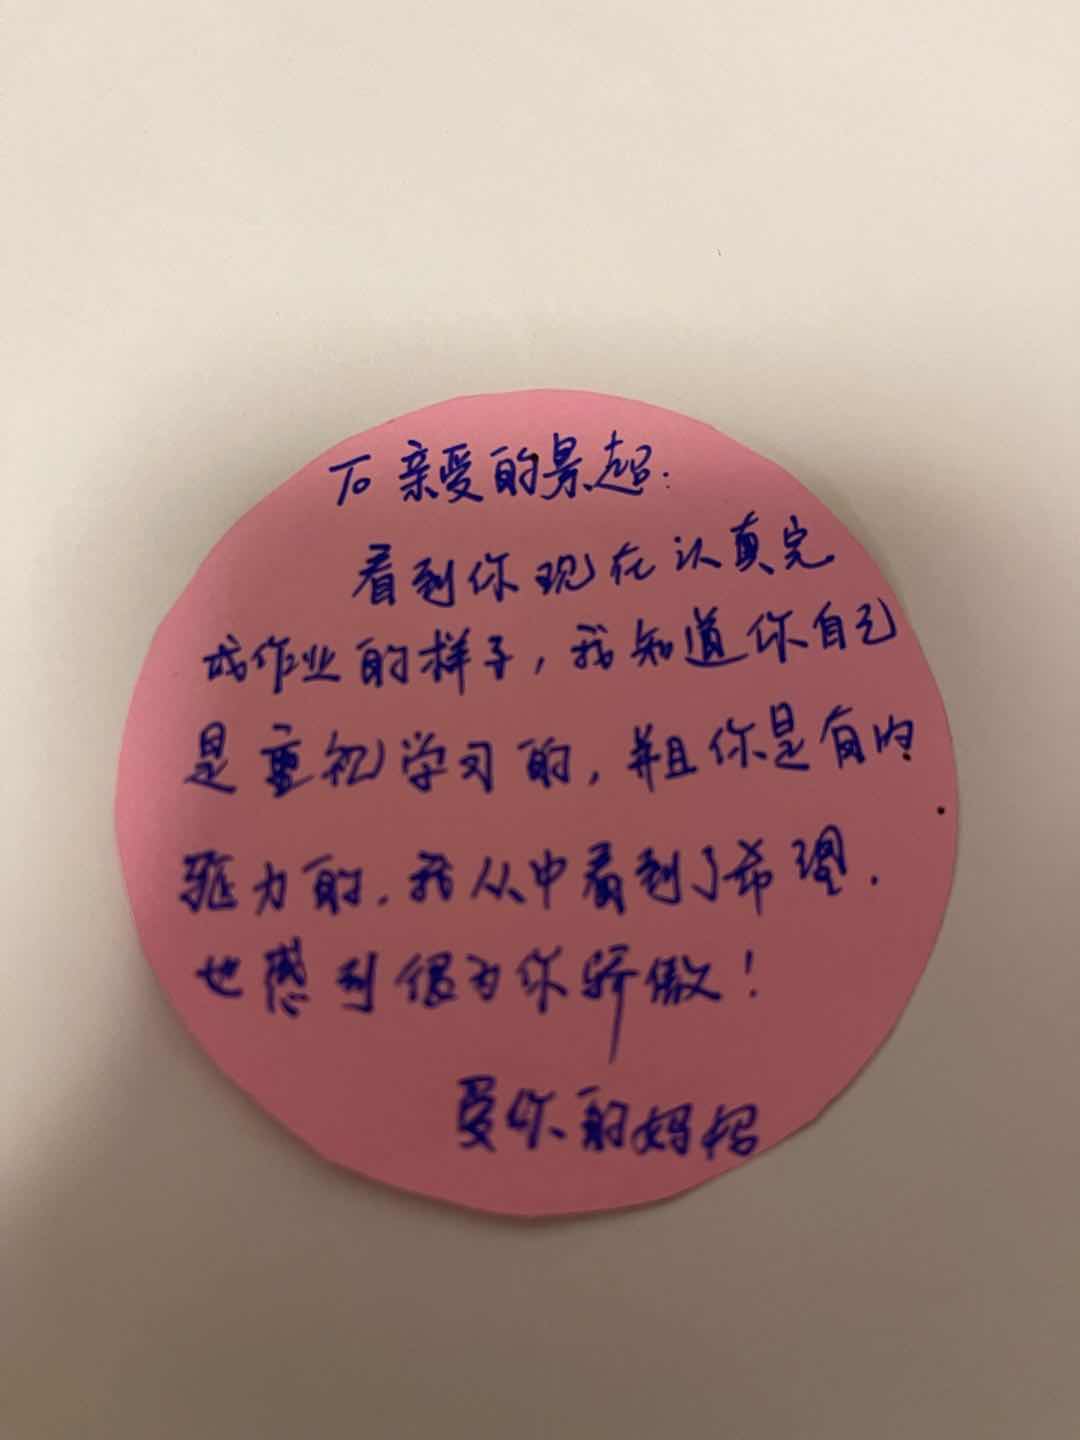 To 亲爱的景超:
看到你现在认真完
成作业的样子,我知道你自己
是重视学习的,并且你是有内
驱力的,我从中看到了希望.
也感到很为你骄傲!
爱你的妈妈